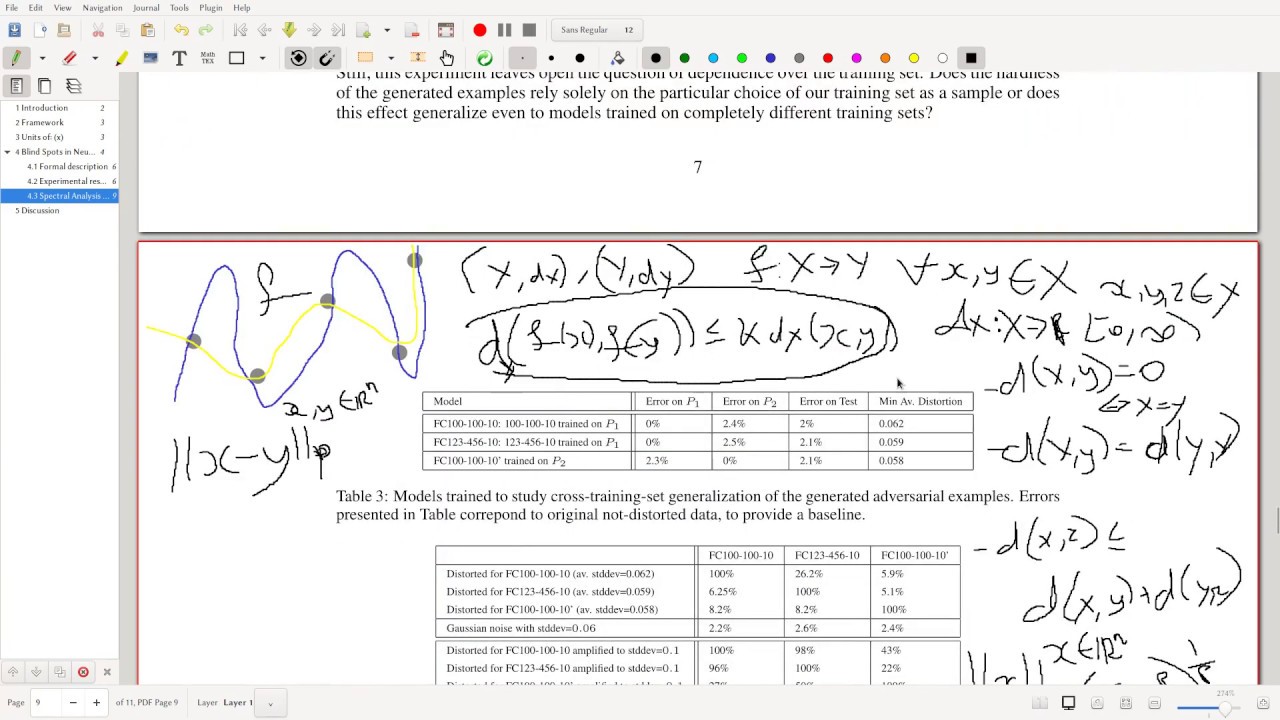 File Edit View Navigation Journal Tools Plugin Help
Sans Regular 12
Math TEX
1 Introduction 2
2 Framework 3
3 Units of: (x) 3
4 Blind Spots in Neu... 4
4.1 Formal description 6
4.2 Experimental res... 6
4.3 Spectral Analysis ... 9
5 Discussion
Still, this experiment leaves open the question of dependence over the training set. Does the hardness
of the generated examples rely solely on the particular choice of our training set as a sample or does
this effect generalize even to models trained on completely different training sets?
7
f
(X, dx), (Y, dy) f: X → Y ∀x, y ∈ X x, y, z ∈ X
d(f(x), f(y)) ≤ K dx(x, y)
dx: X → [0, ∞)
-d(x, y) = 0
⇔ x = y
-d(x, y) = d(y, x)
x, y ∈ ℝⁿ
||x-y||p
Model Error on P1 Error on P2 Error on Test Min Av. Distortion
FC100-100-10: 100-100-10 trained on P1 0% 2.4% 2% 0.062
FC123-456-10: 123-456-10 trained on P1 0% 2.5% 2.1% 0.059
FC100-100-10' trained on P2 2.3% 0% 2.1% 0.058
Table 3: Models trained to study cross-training-set generalization of the generated adversarial examples. Errors
presented in Table correpond to original not-distorted data, to provide a baseline.
-d(x, z) ≤
d(x, y) + d(y, z)
x ∈ ℝⁿ
FC100-100-10 FC123-456-10 FC100-100-10'
Distorted for FC100-100-10 (av. stddev=0.062) 100% 26.2% 5.9%
Distorted for FC123-456-10 (av. stddev=0.059) 6.25% 100% 5.1%
Distorted for FC100-100-10' (av. stddev=0.058) 8.2% 8.2% 100%
Gaussian noise with stddev=0.06 2.2% 2.6% 2.4%
Distorted for FC100-100-10 amplified to stddev=0.1 100% 98% 43%
Distorted for FC123-456-10 amplified to stddev=0.1 96% 100% 22%
Page 9 of 11, PDF Page 9 Layer Layer 1
274%